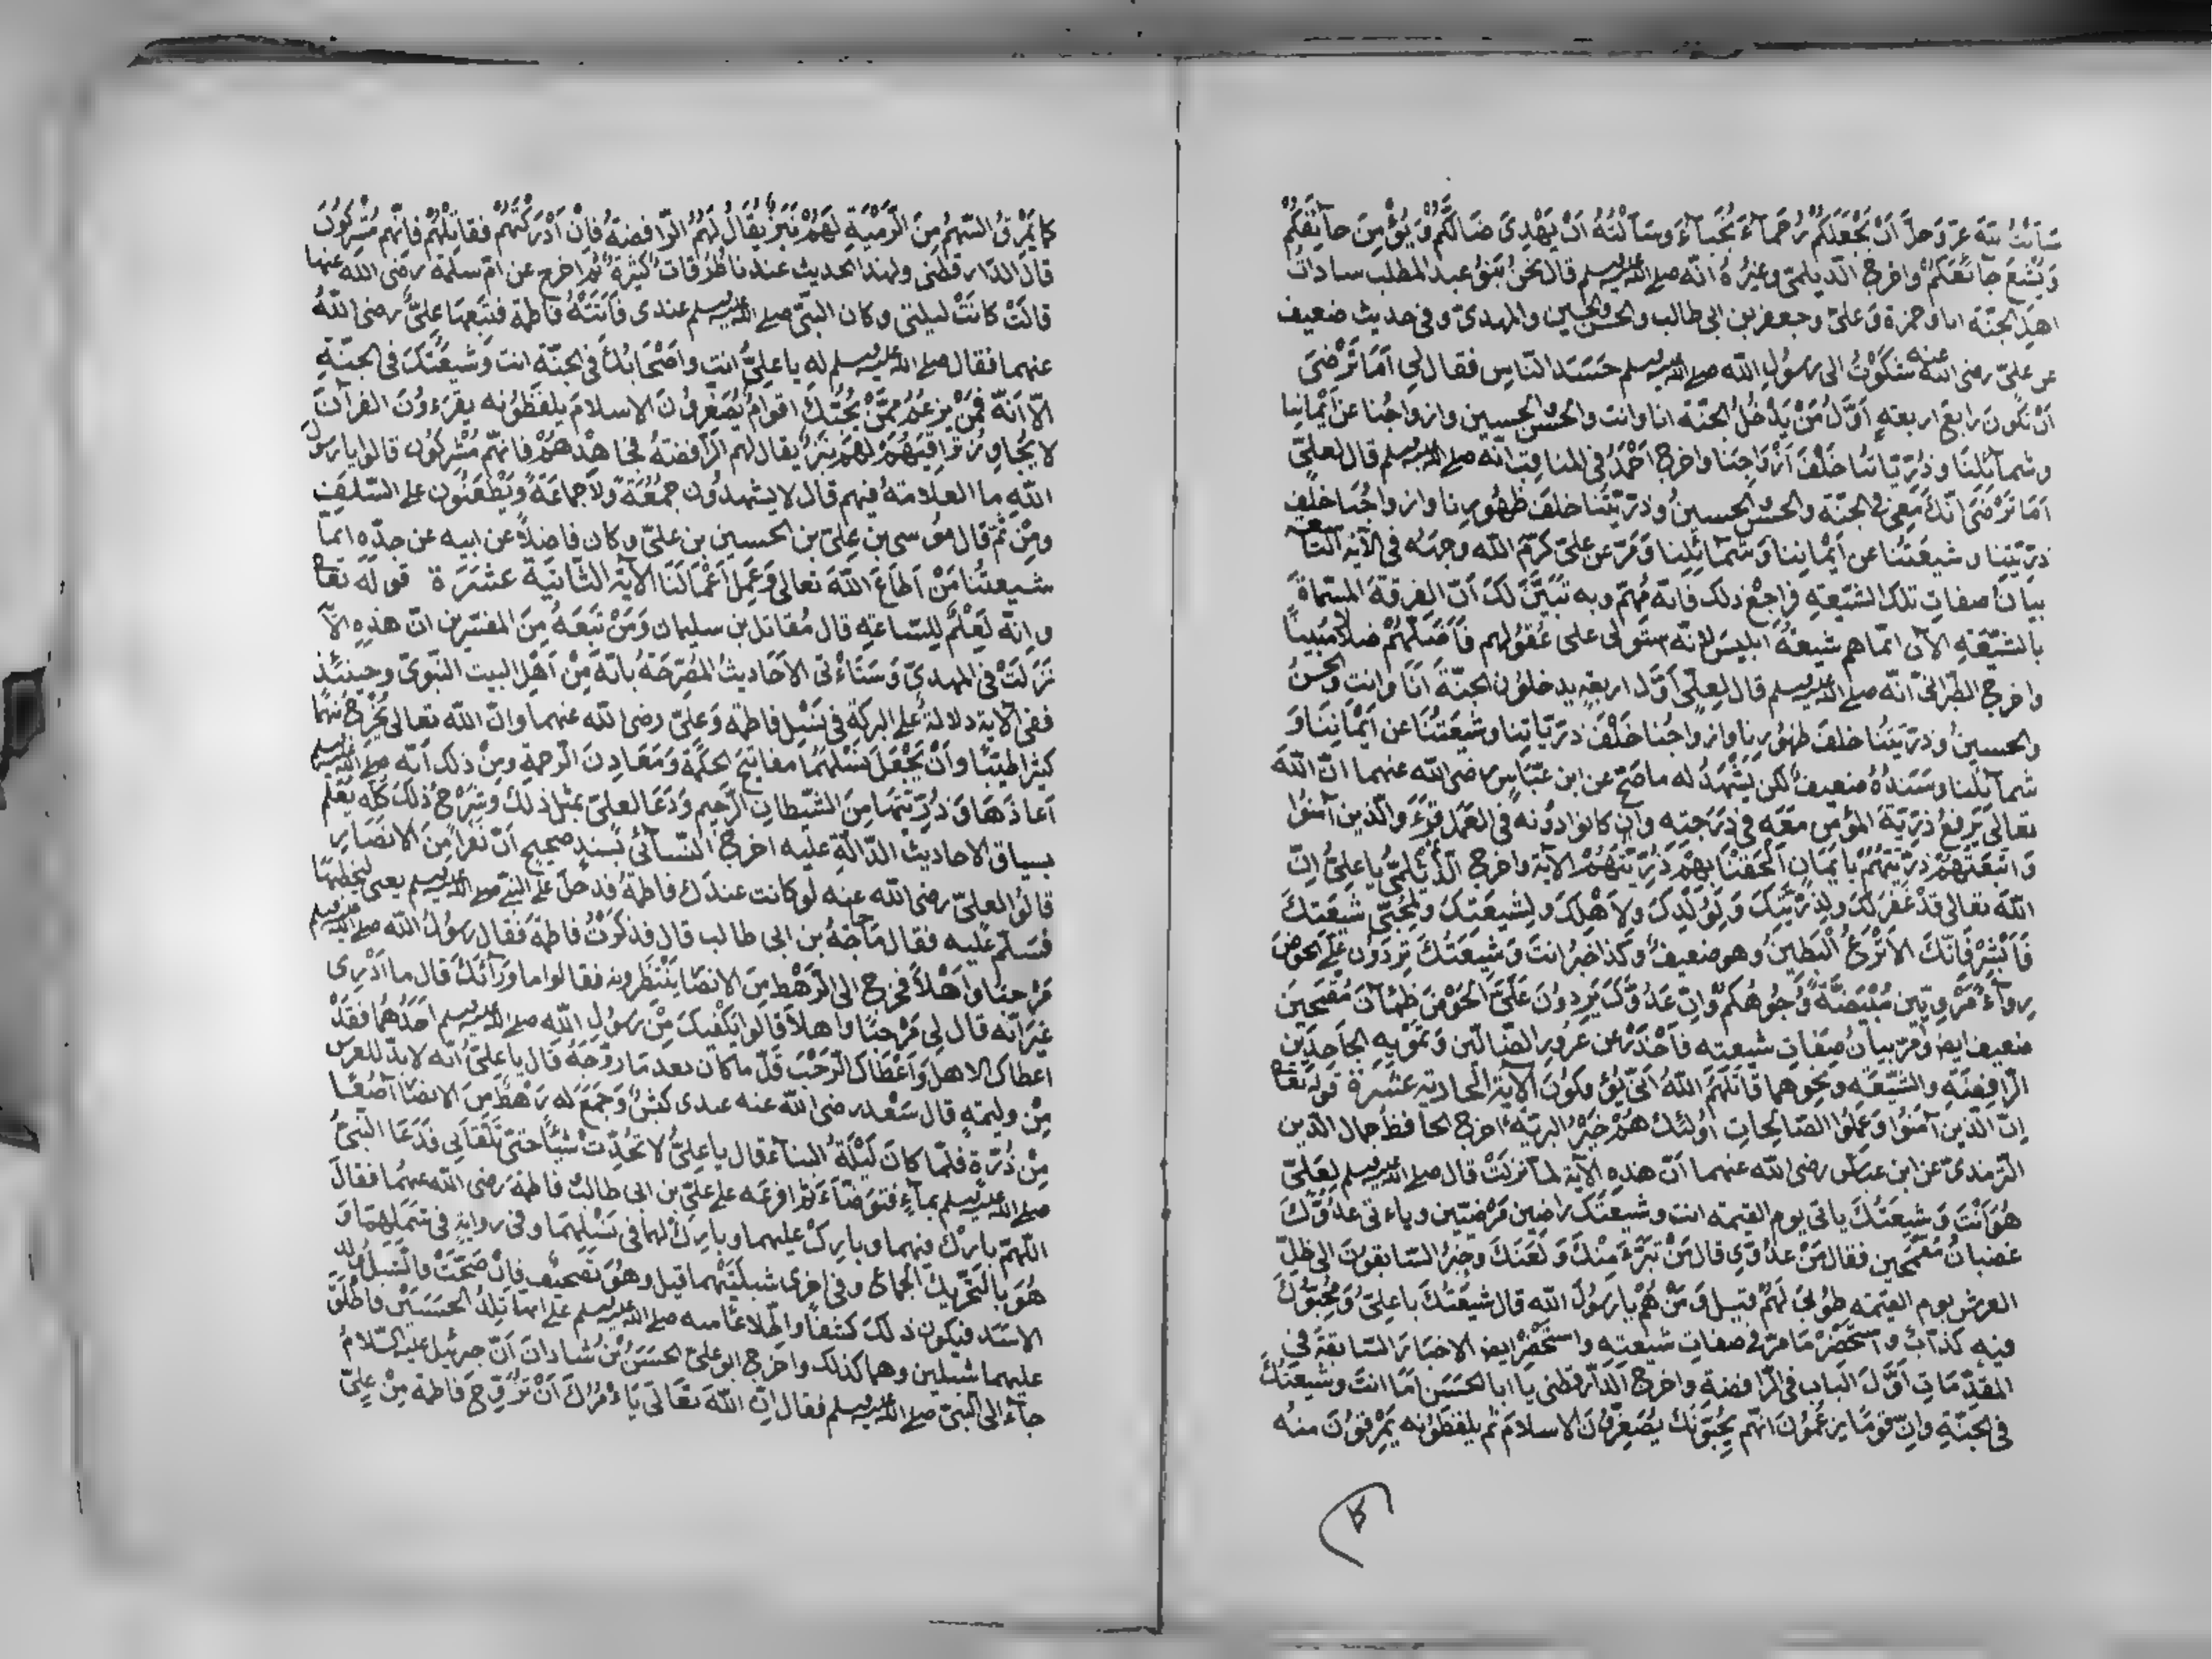 سَاَلْتُ اللّٰه عزّ وجلّ اَنْ يَجْعَلَكُمْ رُحَمَآءَ نُجَبَآءَ وسَاَلْتُهُ اَنْ يَهْدِىَ ضَالَّكُمْ وَيُؤْمِنَ خآئِفَكُمْ
وَيُشْبِعَ جآئعَكُمْ واخرج الدّيلمىّ وغيرُهُ انّه صلى الله عليه وسلم قال نحنُ بَنُو عبد المطلب ساداتُ
اهلِ الجنّة انا وحمزة وَعلىّ وجعفر بن ابى طالب والحسن والحسين والمهدىّ وفى حديث ضعيف
عن علىّ رضى الله عنه شَكَوْتُ الى رسُولِ الله صلى الله عليه وسلم حَسَدَ النّاسِ فقال لِى اَمَا تَرْضَى
اَنْ تَكُونَ رابعَ اربعةٍ اَوّلُ مَنْ يَدْخُلُ الجنّة انا وانت والحسن والحسين وازواجُنا عن اَيْمَانِنا
وشمآئِلِنَا وذُرِّيّاتُنا خَلْفَ اَزْوَاجِنا واخرج احْمَدُ فى المناقب انّه صلى الله عليه وسلم قال لعلىّ
اَمَا تَرْضَى انّكَ مَعِى فى الجنّة والحسنُ والحسينُ وذرّيّتُنا خلفَ ظهُورِنا وازواجُنا خلفَ
ذرّيّتِنا وشيعتُنا عن اَيْمانِنا وَشمآئِلِنا وَمَرّ عن علىّ كرّم الله وجهَه فى الآية التاسعة
بيانُ صفاتِ تلك الشيعةِ فرَاجِعْ ذلك فانّه مُهِمّ وبه تَبَيّنَ لَكَ اَنّ الفِرقةَ المسمّاةَ
بالشيعةِ الآن انّما هم شيعةُ ابليسَ لانّه استولى على عُقُولِهم فَاَضَلّهُمْ ضلالا مُبينًا
واخرج الطّبرانىّ انّه صلى الله عليه وسلم قال لِعلىّ اَوّلُ اربعةٍ يدخلون الجنّة اَنَا وَانت والحسنُ
والحسينُ وذرّيّتُنا خلفَ ظهُورِنا وازواجُنا خَلْفَ ذرّيّاتِنا وشيعتُنَا عن اَيْمانِنَا وَ
شمآئِلنا وسَنَدُهُ ضعيفٌ لكن يَشْهَدُ له ما صَحّ عن ابن عبّاس رضى الله عنهما انّ اللهَ
تعالى يَرفَعُ ذرّيّةَ المؤمِنِ مَعَه فى دَرَجتِه وان كانوا دُونَه فى العَمَلِ ثم قرأَ والّذين آمنُوا
وَاتّبَعَتْهُمْ ذرّيّتُهُمْ بايمَانٍ اَلحَقنْا بِهِمْ ذرّيّتَهُمْ الآية واخرج الدّيْلَمىّ ياعلىّ انّ
الله تعالى قدْ غَفَرَ لَكَ ولِذرّيّتِكَ وَلِوُلْدِكَ ولاَهْلِكَ ولِشيعَتِكَ ولِمُحِبّى شيعَتِكَ
فَاَبْشِرْ فَانّكَ الاَنْزَعُ الْبَطِينُ وهو ضعيفٌ وكذا خبرُ انتَ وَشيعتُكَ تَرِدُون عَلَىّ الحَوْضَ
رِوآءً مَرْوِيّينَ مُبْيَضّةً وُجُوهُكم وَانّ عَدُوّكَ يَرِدُونَ عَلَىّ الحَوْضَ ظِمَآءً مُقْمَحِينَ
ضعيف ايض ومَرّ بيانُ صِفاتِ شيعته فَاحْذَرْ عن غرُورِ الضالّين وَتمْويهِ الجَاحِدين
الرّافِضَة والشيعَة ونحوِهما قاتَلَهُمُ اللهُ اَنّى يُؤْفكونَ الآيةُ الحادية عشرة قولُهُ تعا
انّ الذين آمَنُوا وَعمِلُوا الصّالحاتِ اُولئك هُمْ خَيْرُ البريّة اخرج الحافظُ جمال الدّين
الزّرندىّ عن ابن عبّاس رضى الله عنهما انّ هذه الآية لما نزلتْ قال صلى الله عليه وسلم لِعَلىّ
هُوَ اَنْتَ وَشيعَتُكَ ياتى يوم القيمة انت وشيعَتُكَ راضِين مَرْضِيّين وياءتى عدُوّكَ
غضبانًا مُقْمَحِين فقال مَنْ عدُوّى قال مَنْ تَبَرّءَ مِنْكَ وَلَعَنَكَ وخَبَرُ السّابقُونَ الى ظلّ
العرشِ يوم القيمة طوُبى لَهُمْ قيل وَمَنْ هُمْ يا رسُولَ الله قال شيعَتُكَ يا علىّ وَمُحِبُّوكَ
فيه كذّابٌ واسْتَحْضِرْ مَا مَرّ فى صفاتِ شيعتِه واسْتَحْضِرْ ايض الاخبَارَ السّابقةَ فى
المقدِّمَاتِ اَوّلَ الباب فى الرّافضة واخرج الدّارقطنى يا ابا الحَسَن اَمّا انتَ وشيعَتُكَ
فى الجنّة وَانّ قومًا يزعُمُونَ انّهم يُحِبّونَكَ يُصَغِّرُونَ الاسلامَ ثم يلفظوُنَه يَمْرقُوُنَ منهُ
كما يَمْرُقُ السّهمُ مِنَ الرّمْيَةِ لَهُمْ نَبَزٌ يُقَالُ لَهُمُ الرّافضةُ فاِنْ اَدْرَكْتَهُمْ فَقاتِلْهُمْ فَانّهم مُشْرِكُونَ
قال الدّارقطنى ولهذا الحديث عندنا طُرُقات كثيرة ثم اخرج عن امّ سلمة رضى الله عنها
قالَتْ كَانَتْ ليلتى وكان النبىّ صلى الله عليه وسلم عندى فَاَتَتْهُ فاطمة فتَبِعَهَا عَلىّ رضى اللهُ
عنهما فقال صلى الله عليه وسلم له يا علىّ انت واصْحَابُكَ فى الجنّة انت وَشيعَتُكَ فى الجنّةِ
الاّ انّه مِمّنْ يزعُمُ ممّنْ يُحِبّكَ اقوامٌ يُصَغّرُونَ الاسلامَ يلفظُوُنه يقرَءُونَ القرآنَ
لا يُجَاوِزُ تَرَاقِيَهُمْ لهُمْ نَبَزٌ يقال لهم الرّافضةُ فجاهِدْهُمْ فانّهم مُشركُون قالوا يارسولَ
اللهِ ما العلامةُ فيهم قال لا يشهدُون جمُعَةً وَلا جماعَةً وَيَطْعَنُون على السّلفِ
ومِنْ ثَمّ قال مُوسى بن علىّ بن الحسين بن علىّ وكان فاضلاً عن ابيه عن جدّه انّما
شيعتُنا مَنْ اَطاعَ اللهَ تعالى وَعَمِلَ اَعْمَالَنَا الآية الثّانية عشَرَة قوله تعا
وانّه لَعِلْمٌ لِلسّاعةِ قال مُقاتل بن سليمان وَمَنْ تَبِعَهُ مِنَ المفسّرين انّ هذِهِ الآ
نَزلَتْ فى المهدىّ وَسَتَاْتى الاَحَاديثُ المُصَرّحَةُ بانّه مِنْ اَهْلِ البيت النّبوىّ وحينئذ
ففى الآية دلالةٌ على البركةِ فى نَسْلِ فاطمةَ وَعلىّ رضى الله عنهما وانّ الله تعالى يُخْرِجُ منهما
كثيرًا طيّبًا وانْ يَجْعَلَ نَسْلَهُمَا مفاتيحَ الحكمَةِ وَمَعَادِنَ الرّحمةِ وسِرُّ ذلك اَنّه صلى الله عليه وسلم
اَعَاذَهَا وَذُرّيّتَهَا مِنَ الشّيطانِ الرّجيم وَدَعَا لعلىّ بمثلِ ذلكَ وشَرْحُ ذلكَ كُلِّهِ يُعْلَمُ
بسياق الاحاديث الدّالّةِ عليه اخرج النّسآئىّ بسندٍ صحيح انّ نفرًا مِنَ الانصَارِ
قالُوا لعلىّ رضى الله عنه لو كانت عندكَ فاطمةُ فدخلَ على النبىّ صلى الله عليه وسلم يعنى ليخطبَها
فسلّم عليه فقال مَا حَاجَةُ بن ابى طالب قال فذكرْتُ فاطمة فَقال رَسُولُ الله صلى الله عليه وسلم
مَرْحَبًا وَاهْلاً فخرج الى الرّهْطِ مِنَ الانصَار يَنْتَظِرُونه فقالوا ما وَرَآئَكَ قال ما اَدْرِى
غيرَ انّه قال لِى مَرْحَبًا وَاهلاً قالوا يَكْفِيكَ مِنْ رَسُولِ الله صلى الله عليه وسلم اَحَدُهُما فقدْ
اعطاكَ الاهلَ وَاَعْطَاكَ الرّحْبَ فلمّا كان بعد مَا زوّجَهُ قال يا علىّ انّه لا بدّ للعرس
مِنْ وليمةٍ قال سَعْد رضى الله عنه عندى كَبْشٌ وَجَمَعَ له رَهْطٌ مِنَ الانصار آصُعًا
مِنْ ذُرَةٍ فلمّا كانَ لَيْلَةُ البنآءِ قال يا علىّ لا تُحْدِثْ شيئًا حتّى تَلْقَانِى فَدَعَا النبىّ
صلى الله عليه وسلم بمآءٍ فتوضّآءَ ثم افرغَه على علىّ بن ابى طالب وفاطمة رضى الله عنهما فقالَ
اللّهمّ بارِكْ فيهما وبارِكْ عليهما وبارِكْ لهما فى نَسْلِهِمَا وفى روايةٍ فى شَمَلِهِمَا وَ
هُوَ بالتّحْريك الجماعُ وفى اخرى شبلَيْهِما قيل وهُوَ تَصحيفٌ فاِنْ صَحّتْ فالشِبلُ ولد
الاَسَدِ فيكون ذلكَ كشفًا واطلاعًا منه صلى الله عليه وسلم على انّها تلِدُ الحَسَنَيْن فَاَطْلَقَ
عليهما شبلين وهما كذلك واخرج ابو علىّ الحسَنُ بنُ شَاذان اَنّ جبرئيل عليه السّلامُ
جآءَ الى النبىّ صلى الله عليه وسلم فقال انّ اللهَ تعَالى يَاءمُرُكَ اَنْ تُزَوِّجَ فَاطمة مِنْ عَلِىّ